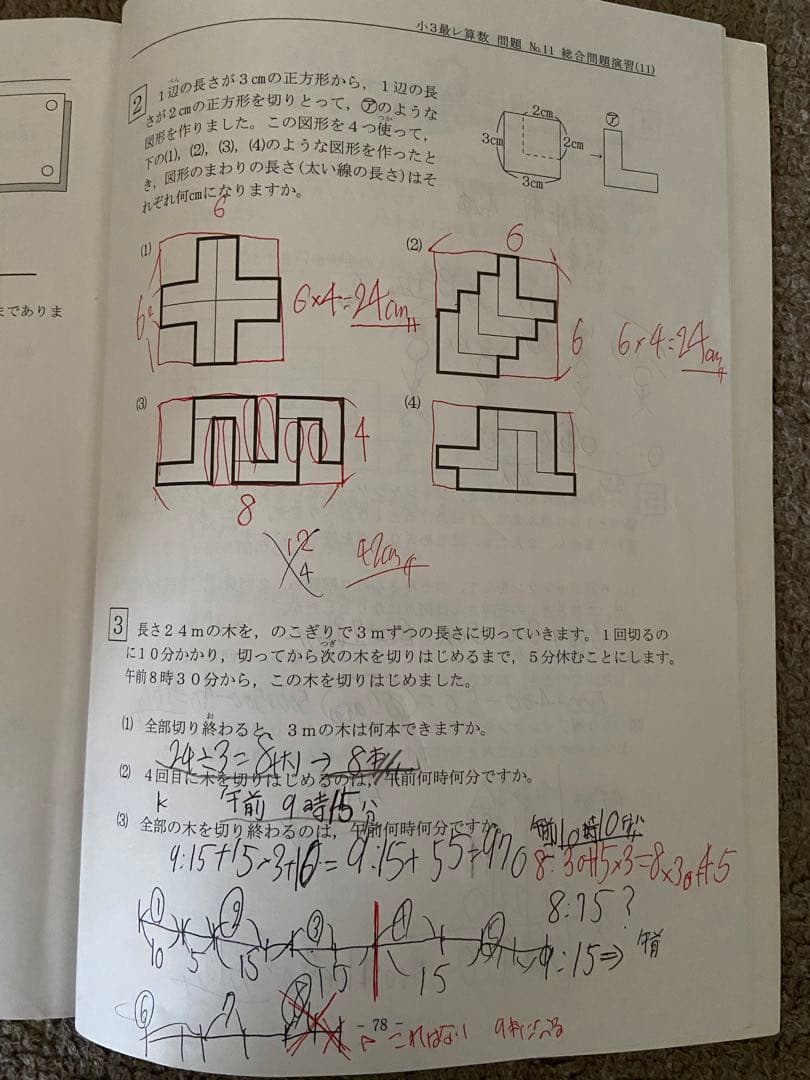 小3最レ算数 問題 No.11 総合問題演習(11)
2 1辺の長さが3cmの正方形から，1辺の長
さが2cmの正方形を切りとって，㋐のような
図形を作りました。この図形を4つ使って，
下の(1)，(2)，(3)，(4)のような図形を作ったと
き，図形のまわりの長さ(太い線の長さ)はそ
れぞれ何cmになりますか。
2cm
3cm
2cm
3cm
→
㋐
までありま
(1)
6
6
6×4=24cm
(2)
6
6
6×4=24cm
(3)
4
8
12
4
42cm
(4)
3 長さ24mの木を，のこぎりで3mずつの長さに切っていきます。1回切るの
に10分かかり，切ってから次の木を切りはじめるまで，5分休むことにします。
午前8時30分から，この木を切りはじめました。
(1) 全部切り終わると，3mの木は何本できますか。
24÷3=8(本)→8本
(2) 4回目に木を切りはじめるのは，午前何時何分ですか。
午前 9時15分
(3) 全部の木を切り終わるのは，午前何時何分ですか。
午前10時10分
9:15+15×3+10=9:15+55=970
8:30+15×3=8×30+45
8:75?
9:15⇒午前
① ② ③ ④ ⑤
10 5 15 15 15
⑥ 7
これはない
- 78 -